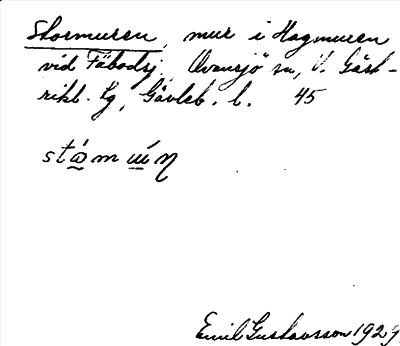 Stormuren, mur i Hagmuren
vid Fäbodsj. Ovansjö sn, V. Gäst-
rikl. tg, Gävleb. l. 45
stå̀mu̇́n
Emil Gustavsson 1929